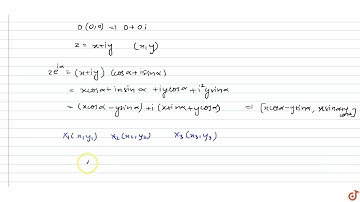 0 (0,0) = 0+0i
z = x+iy (x,y)
ze^{iα} = (x+iy) (cosα+isinα)
= xcosα+ixsinα +iycosα+i²ysinα
= (xcosα-ysinα) + i (xsinα+ycosα) = [xcosα-ysinα, xsinα+ycosα]
X₁(x₁,y₁) X₂(x₂,y₂) X₃(x₃,y₃)